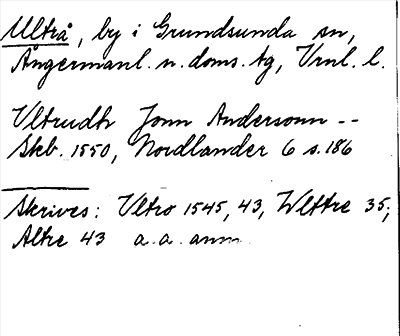 Ultrå, by i Grundsunda sn,
Ångermanl. n. doms. tg, Vrnl. l.
Vltrudh Jonn Andersonn --
Skb. 1550, Nordlander 6 s. 186
Skrives: Vltro 1545, 43, Wlttre 35;
Altre 43 a.a. anm.